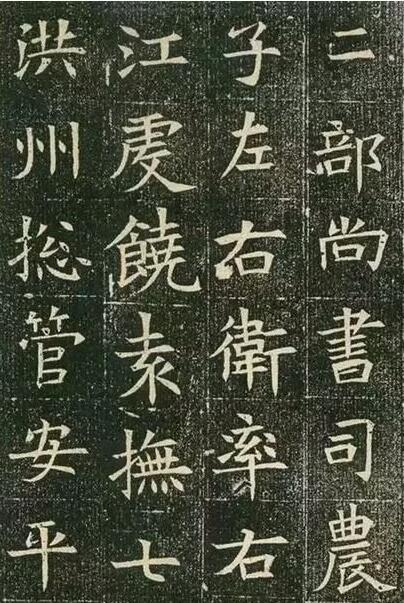 二部尚書司農
子左右衛率右
江虔饒袁撫七
洪州捴管安平